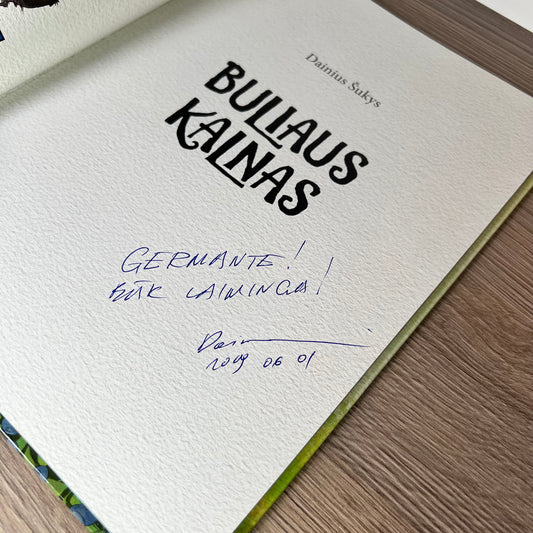 Dainius Šukys
BULIAUS
KALNAS
GERMANTE!
BŪK LAIMINGA!
2019 06 01